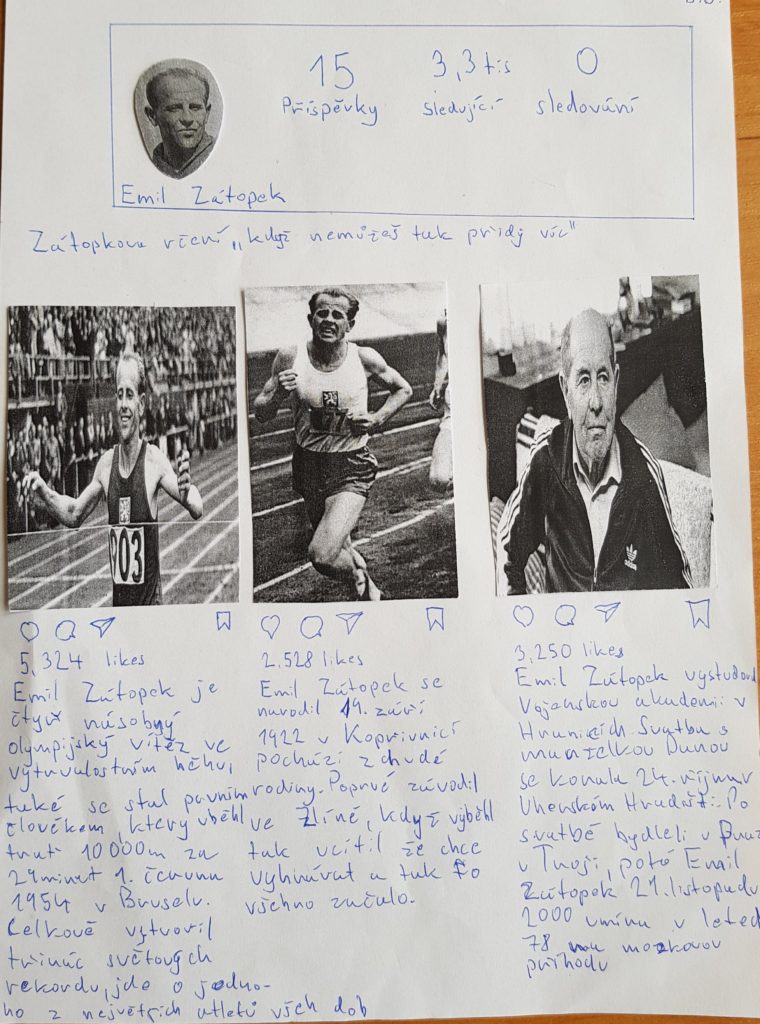 15
3,3 tis
0
Příspěvky
sledující
sledování
Emil Zátopek
Zátopkovo rčení „když nemůžeš tak přidej víc"
903
5,324 likes
Emil Zátopek je
čtyř násobný
olympijský vítěz ve
vytrvalostním běhu,
také se stal prvním
člověkem, který uběhl
trať 10 000m za
29minut 1. června
1954 v Bruselu.
Celkově vytvořil
třináct světových
rekordu, jde o jedno-
ho z největších atletů všch dob
2.528 likes
Emil Zátopek se
narodil 19. září
1922 v Kopřivnici
pochází z chudé
rodiny. Poprvé závodil
ve Zlíně, když výběhl
tak ucítil že chce
vyhrávat a tak to
všechno začalo.
3,250 likes
Emil Zátopek vystudoval
Vojenskou akademii v
Hranicích. Svatba s
manželkou Danou
se konala 24. října v
Uherském Hradišti. Po
svatbě bydleli v Praze
v Troji, poté Emil
Zátopek 21. listopadu
2000 umírá v letech
78 na mozkovou
příhodu